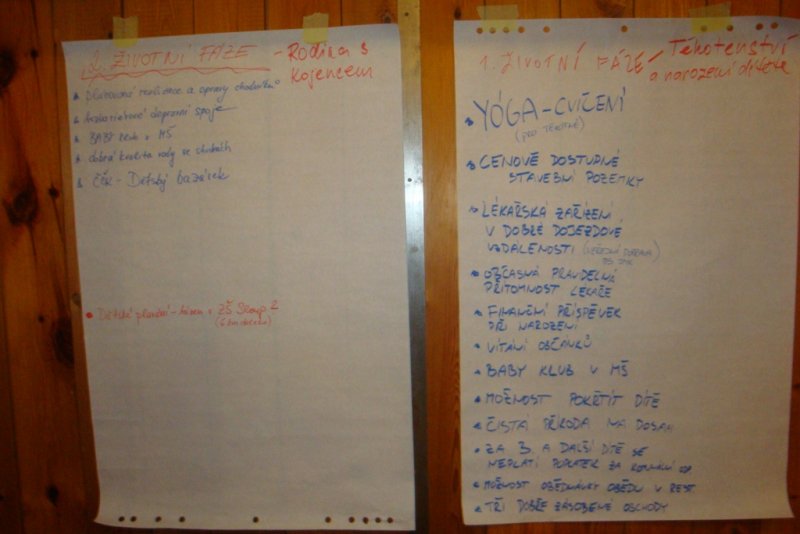 2. ŽIVOTNÍ FÁZE - Rodina s
kojencem
plánovaná rekonstrukce a opravy chodníků
bezbarierové dopravní spoje
BABY klub v MŠ
dobrá kvalita vody ve studnách
ČČK - Dětský bazárek
Dětské plavání - bazén v ZŠ Sloup
1. ŽIVOTNÍ FÁZE / Těhotenství
a narození dítěte
YÓGA - CVIČENÍ
(PRO TĚHOTNÉ)
CENOVĚ DOSTUPNÉ
STAVEBNÍ POZEMKY
LÉKAŘSKÁ ZAŘÍZENÍ
V DOBŘE DOJEZDOVÉ
VZDÁLENOSTI (VEŘEJNÁ DOPRAVA
OBČASNÁ PRAVIDELNÁ
PŘÍTOMNOST LÉKAŘE
FINANČNÍ PŘÍSPĚVEK
PŘI NAROZENÍ
VÍTÁNÍ OBČÁNKŮ
BABY KLUB V MŠ
MOŽNOST POKŘTÍT DÍTĚ
ČISTÁ PŘÍRODA NA DOSAH
ZA 3. A DALŠÍ DÍTĚ SE
NEPLATÍ POPLATEK ZA KOMUNÁL. OD.
MOŽNOST OBJEDNÁVKY OBĚDŮ V REST.
TŘI DOBŘE ZÁSOBENÉ OBCHODY